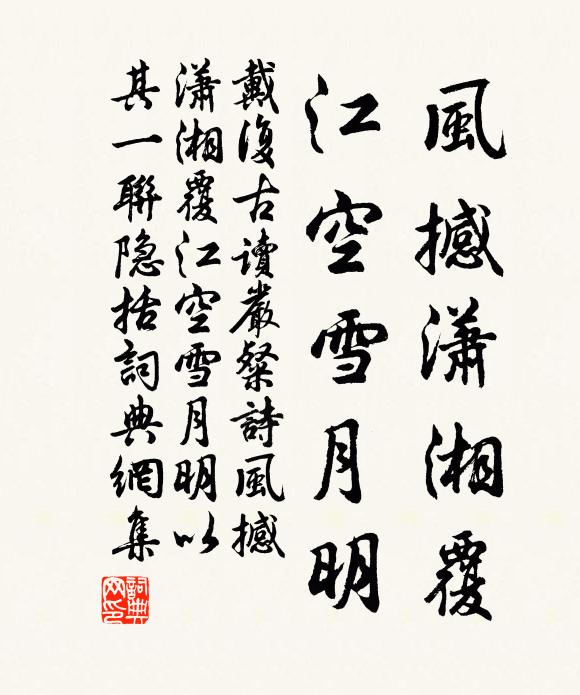 風撼瀟湘覆
江空雪月明
戴復古讀嚴粲詩風撼
瀟湘覆江空雪月明以
其一聯隐括詞典網集
詞典網印